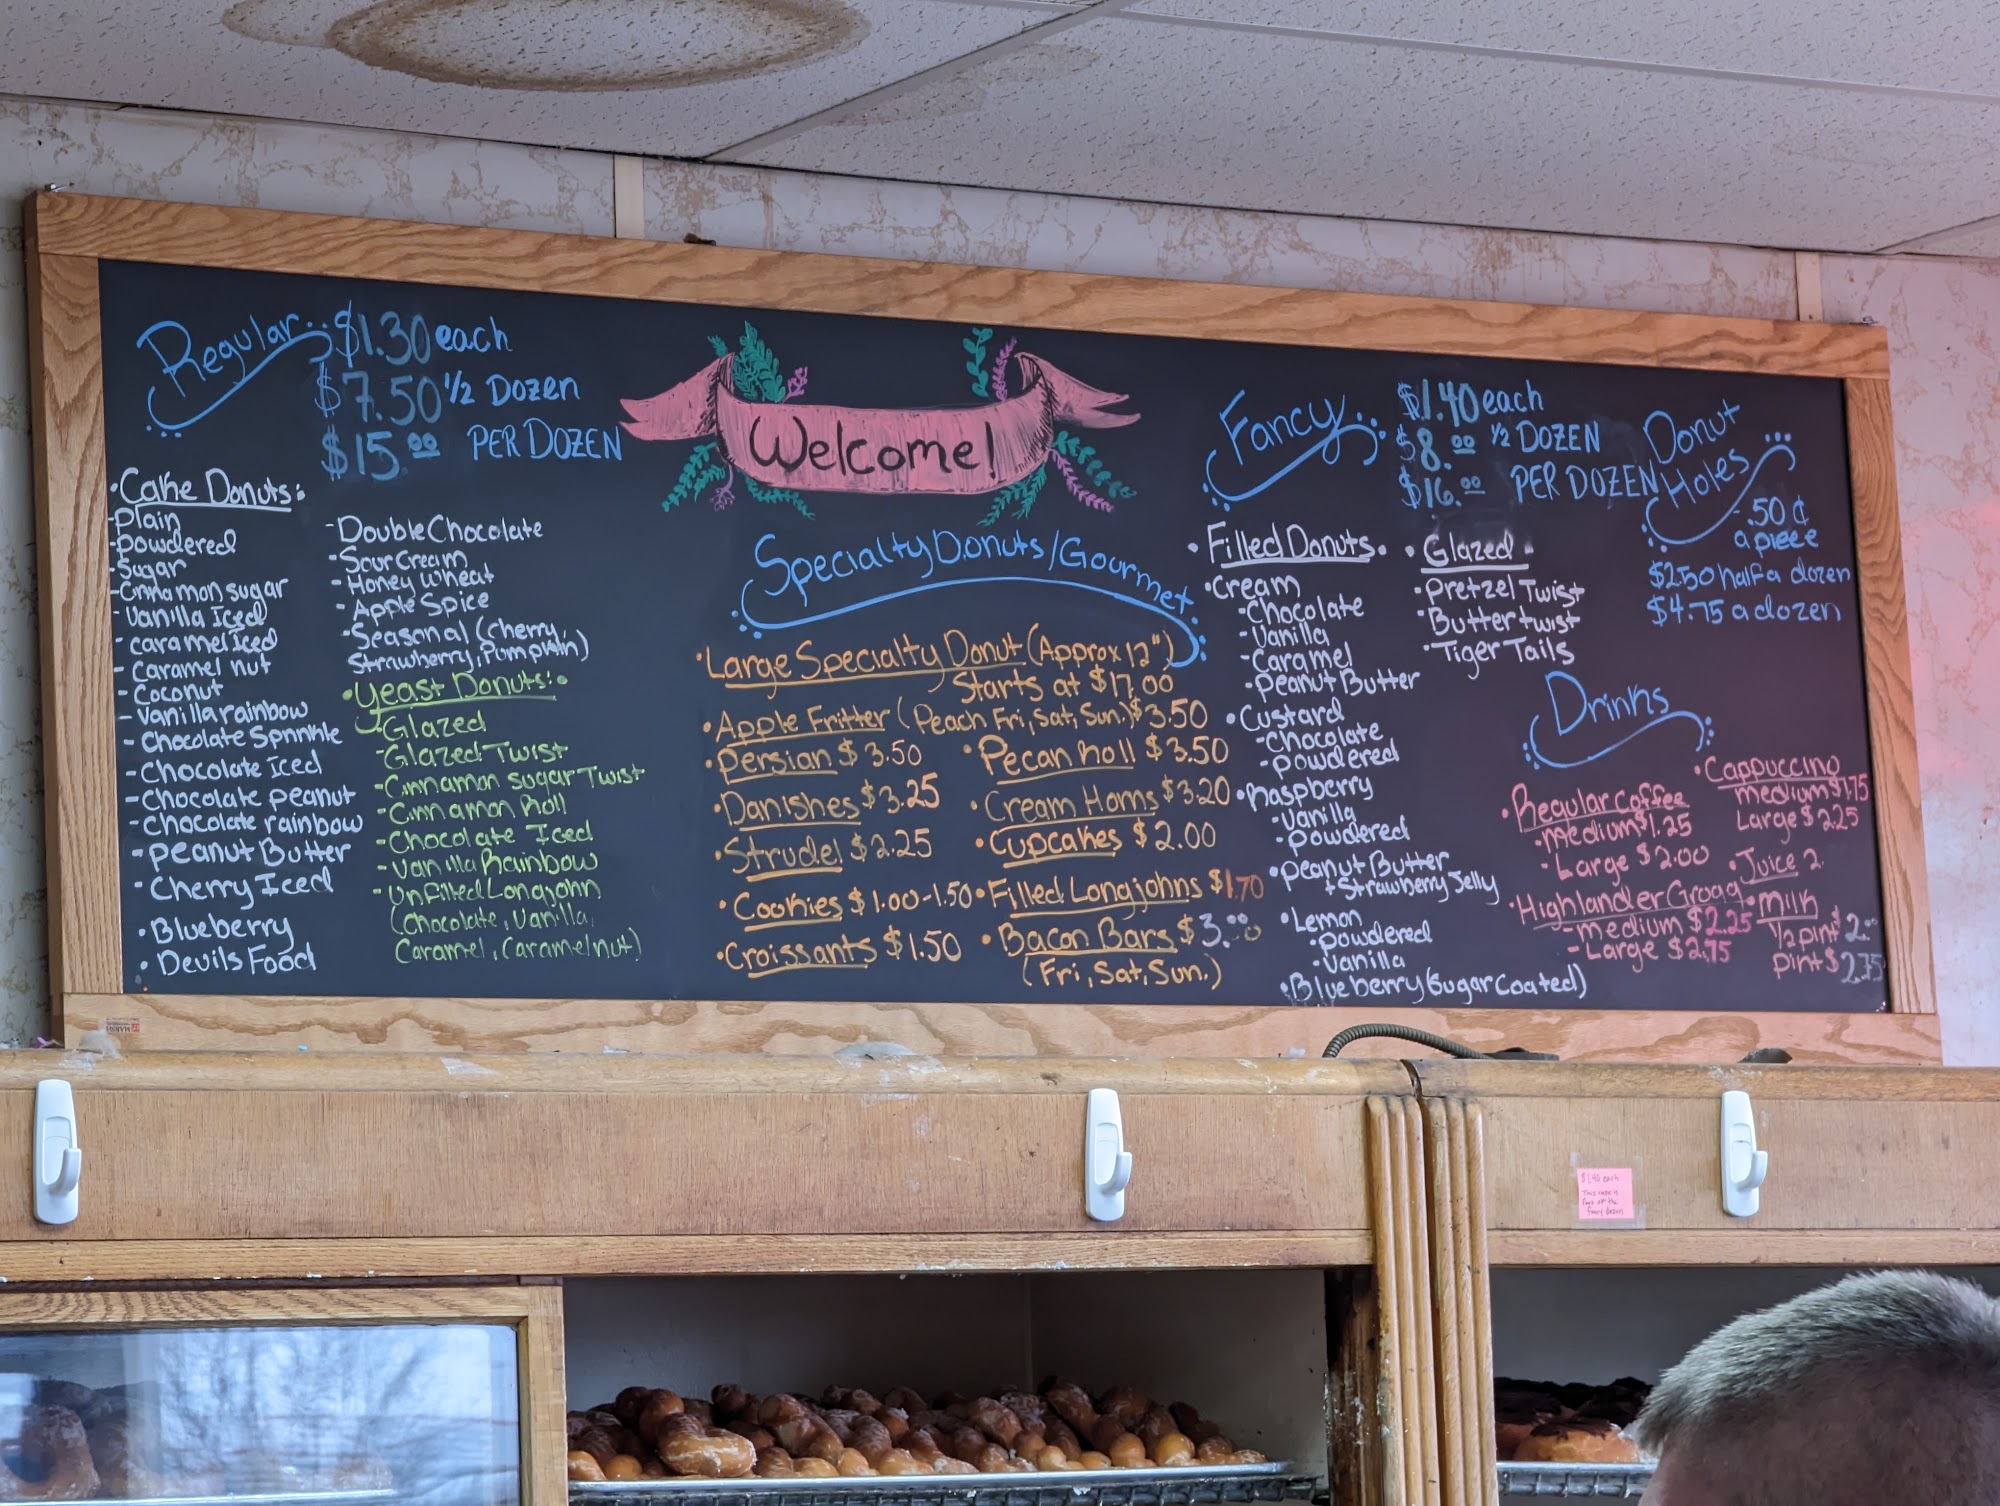 Regular $1.30 each
$7.50 1/2 DOZEN
$15.00 PER DOZEN
• Cake Donuts:
- Plain
- Powdered
- Sugar
- Cinnamon sugar
- Vanilla Iced
- caramel Iced
- Caramel nut
- Coconut
- Vanilla rainbow
- Chocolate Sprinkle
- Chocolate Iced
- Chocolate peanut
- Chocolate rainbow
- Peanut Butter
- Cherry Iced
• Blueberry
• Devils Food
- Double Chocolate
- Sour Cream
- Honey Wheat
- Apple Spice
- Seasonal (Cherry,
Strawberry, Pumpkin)
• Yeast Donuts: •
- Glazed
- Glazed Twist
- Cinnamon sugar Twist
- Cinnamon Roll
- Chocolate Iced
- Vanilla Rainbow
- Unfilled Longjohn
(Chocolate, Vanilla,
Caramel, Caramel nut)
Welcome!
Specialty Donuts/Gourmet
• Large Specialty Donut (Approx 12")
Starts at $17.00
• Apple Fritter (Peach Fri, Sat, Sun.) $3.50
• Persian $3.50
• Danishes $3.25
• Strudel $2.25
• Cookies $1.00-1.50
• Croissants $1.50
• Pecan Roll $3.50
• Cream Horns $3.20
• Cupcakes $2.00
• Filled Longjohns $1.70
• Bacon Bars $3.00
(Fri, Sat, Sun.)
Fancy $1.40 each
$8.00 1/2 DOZEN
$16.00 PER DOZEN
• Filled Donuts •
• Cream
- Chocolate
- Vanilla
- Caramel
- Peanut Butter
• Custard
- Chocolate
- Powdered
• Raspberry
- Vanilla
- Powdered
• Peanut Butter
+ Strawberry Jelly
• Lemon
• Powdered
• Vanilla
• Blueberry (Sugar Coated)
• Glazed •
• Pretzel Twist
• Butter twist
• Tiger Tails
Donut
Holes
- .50 ¢
a piece
$2.50 half a dozen
$4.75 a dozen
Drinks
• Regular Coffee
- medium $1.25
- Large $2.00
• Highlander Grogg
- medium $2.25
- Large $2.75
• Cappuccino
medium $1.75
Large $2.25
• Juice 2.
• Milk
1/2 pint 2.00
pint $2.75
$1.40 each
This case is
Part of the
fancy dozen